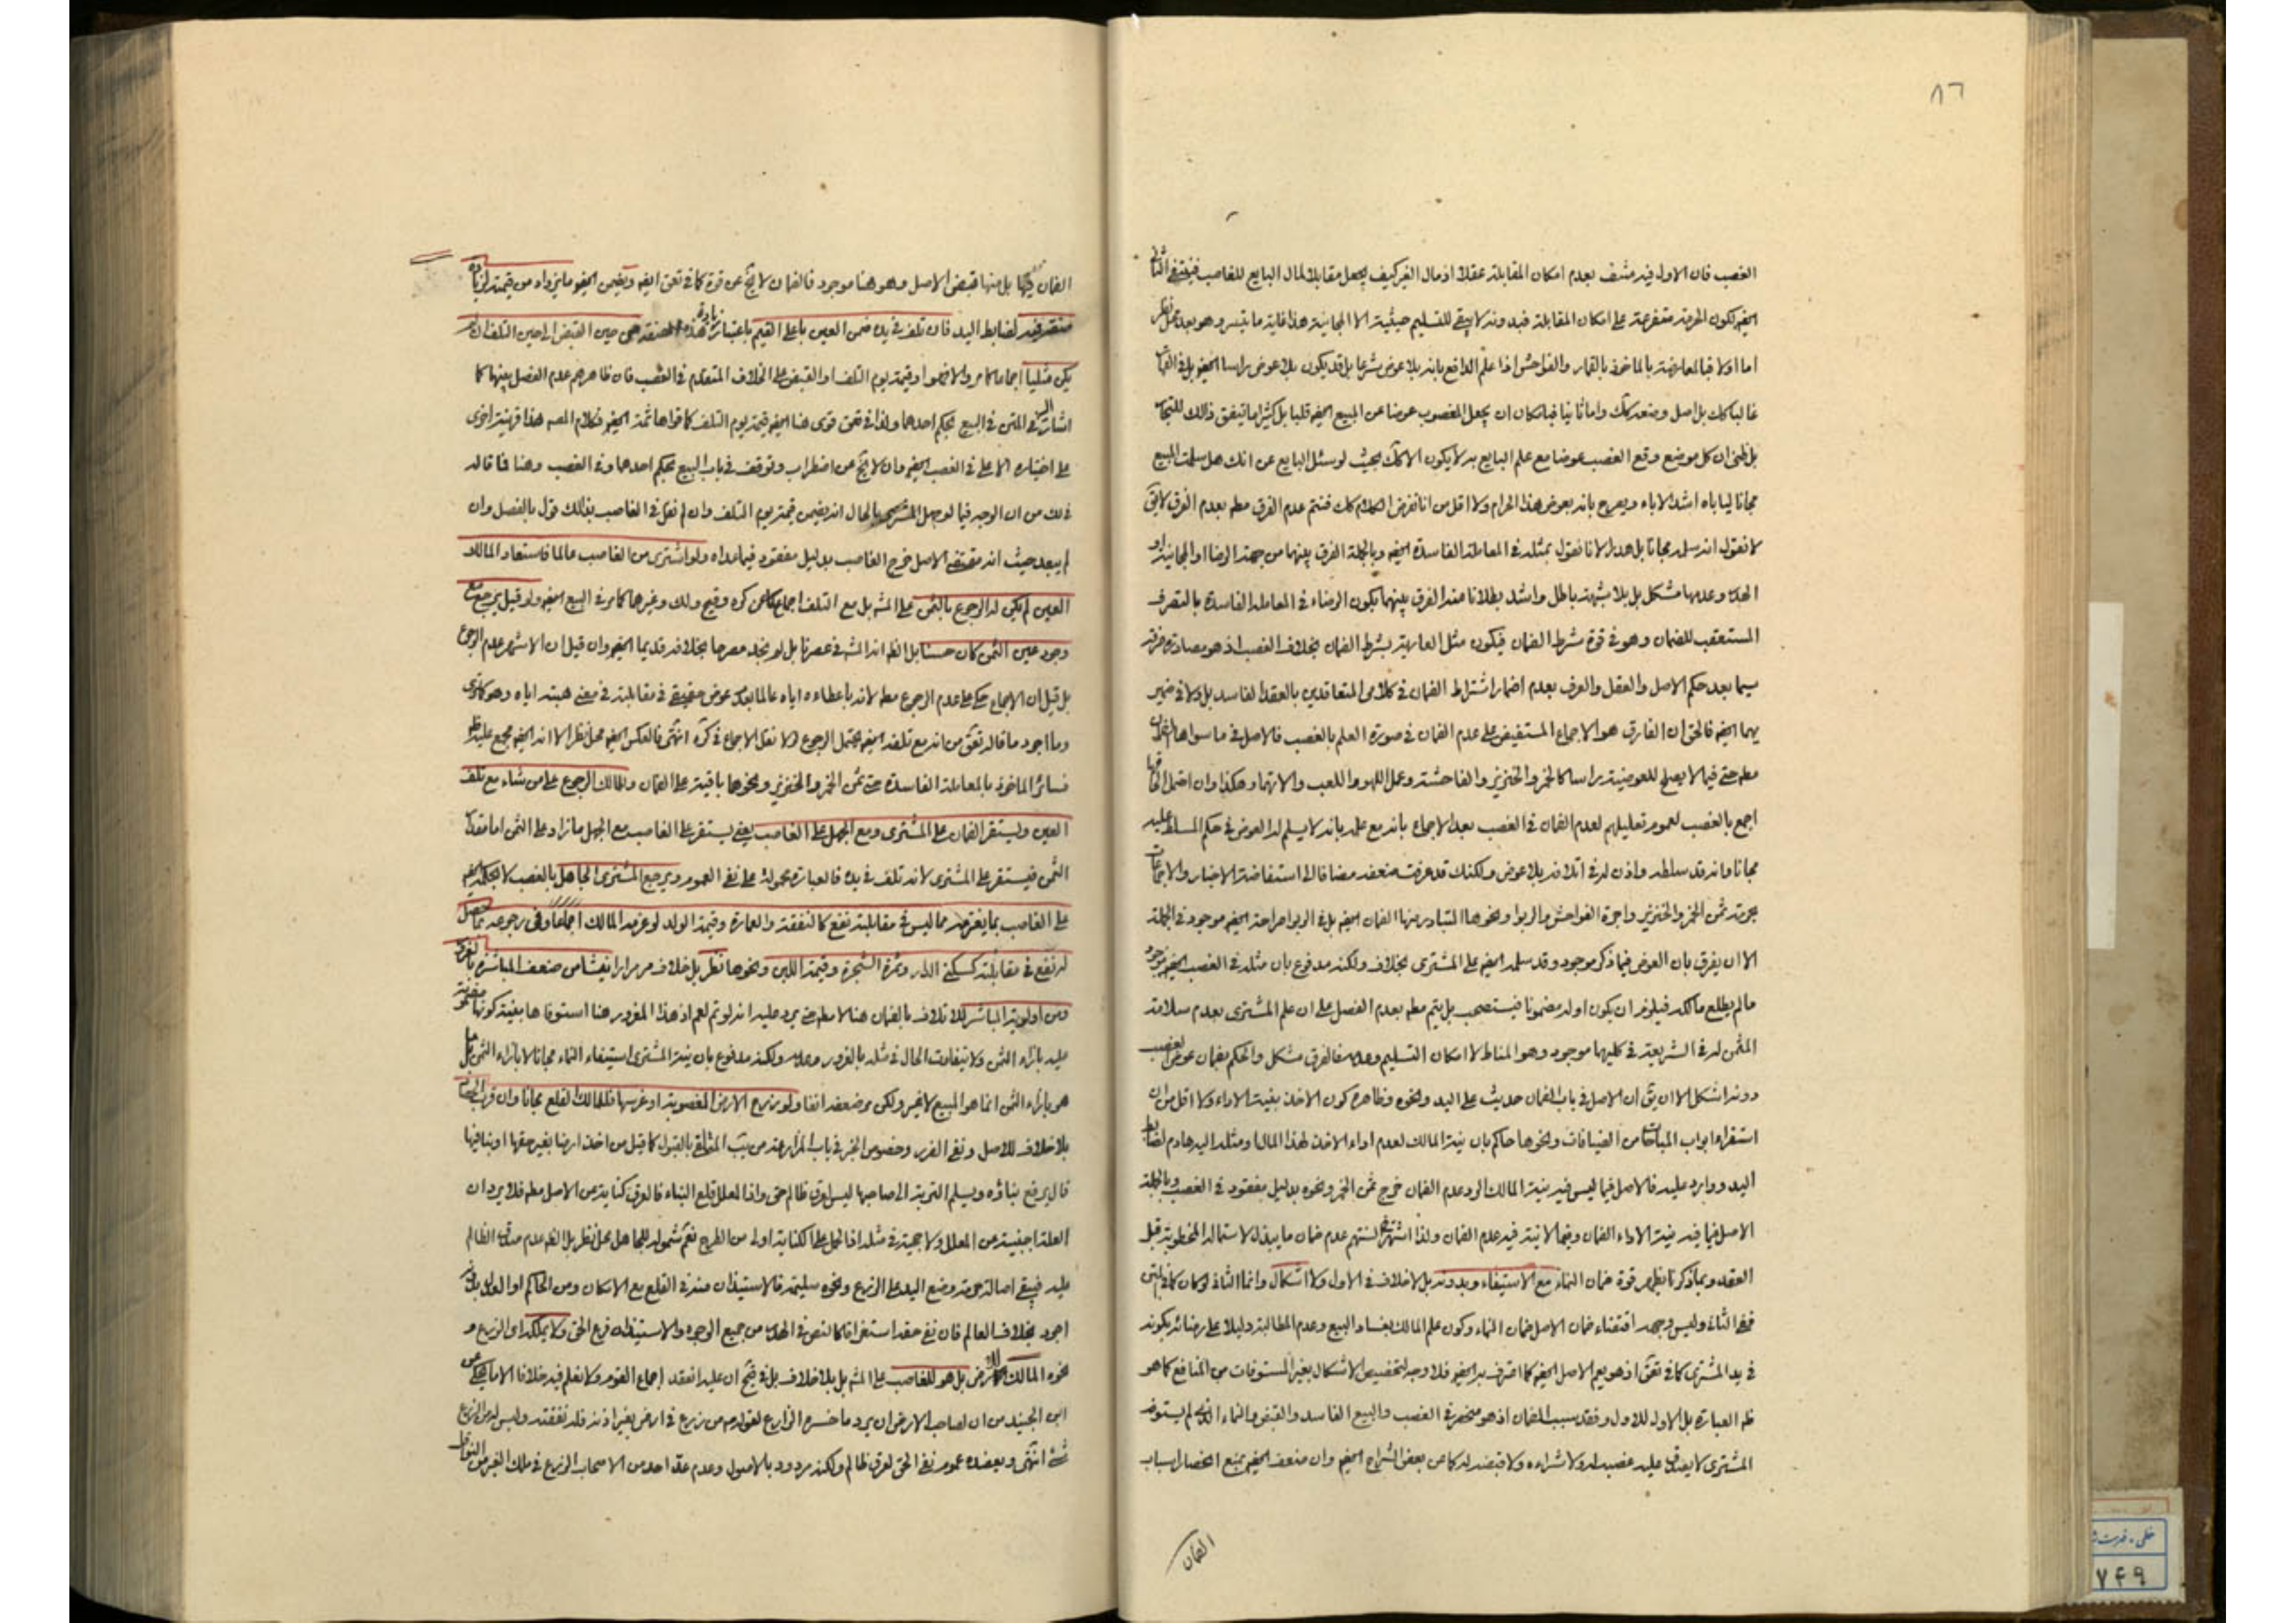 ٨٦
الغصب فان الاول فيه منتف بعدم امكان المقابلة عقلا اذ مال الغير كيف يجعل مقابلا لمال البايع للغاصب فينتفي الثاني
ايضا لكون الحرمة متفرعة على امكان المقابلة فبدونه لا يبقى للتسليم حيثية الا المجانية هذا غاية ما تيسر وهو بعد محل نظر
اما اولا فبالمعارضة بالماخوذ بالقمار والفواحش اذا علم الدافع بانه بلا عوض شرعا بل قد يكون بلا عوض راسا ايضا بل في القمار
غالبا كك بل اصل وضعه كك واما ثانيا فبامكان ان يجعل المغصوب عوضا عن المبيع ايضا قلبا بل كثيرا ما يتفق ذلك للتجار
بل ظني ان كل موضع وقع الغصب عوضا مع علم البايع به لا يكون الا كك بحيث لو سئل البايع عن انك هل سلمت المبيع
مجانا ليأباه اشد الاباء ويصرح بانه بعوض هذا الحرام ولا اقل من انا نفرض الكلام كك فنتم عدم الفرق مطم بعدم الفرق لا يق
لا نقول انه سلمه مجانا بل هدرا لانا نقول بمثله في المعاملة الفاسدة ايضا وبالجملة الفرق بينهما من جهة الرضا او المجانية او
الهدر وعدمها مشكل بل بلا شبهة باطل واشد بطلانا منه الفرق بينهما بكون الرضاء في المعاملة الفاسدة بالتصرف
المستعقب للضمان وهو في قوة شرط الضمان فيكون مثل العارية بشرط الضمان بخلاف الغصب اذ هو مصادرة صرفة
سيما بعد حكم الاصل والعقل والعرف بعدم اضمار اشتراط الضمان في كلام المتعاقدين بالعقد الفاسد بل ولا في ضمير
يهما ايضا فالحق ان الفارق هو الاجماع المستفيض على عدم الضمان في صورة العلم بالغصب فالاصل في ما سواها الضمان
مطم حتى فيما لا يصلح للعوضية راسا كالخمر والخنزير والفاحشة وعمل اللهو واللعب والاتهار وهكذا وان احتمل الحاقها
اجمع بالغصب لعموم تعليلهم لعدم الضمان في الغصب بعد الاجماع بانه مع علمه بانه لا يسلم له العوض في حكم المسلط عليه
مجانا وانه قد سلطه واذن له في اتلافه بلا عوض ولكنك قد عرفت ضعفه مضافا الى استفاضة الاخبار والاجماعات
بحرمة ثمن الخمر والخنزير واجرة الفواحش والربوا ونحوها المتبادر منها الضمان ايضا بل في الربوا صراحة ايضا موجود في الجملة
الا ان يفرق بان العوض فيما ذكر موجود وقد سلمه ايضا على المشتري بخلافه ولكنه مدفوع بان مثله في الغصب ايضا موجود
مالم يطلع مالكه فيلزم ان يكون اولا مضمونا فيستصحب بل يتم مطم بعدم الفصل على ان علم المشتري بعدم سلامة
المثمن له في الشريعة في كليهما موجود وهو المناط لا امكان التسليم وعدمه فالفرق مشكل والحكم بضمان عوض الغصب
دونه اشكل الا ان يق ان الاصل في باب الضمان حديث على اليد ونحوه وظاهره كون الاخذ بنية الاداء ولا اقل من ان
استقراء ابواب المباحات من الضيافات ونحوها حاكم بان نية المالك لعدم اداء الاخذ لهذا المال او مثله اليه هادم لضابط
اليد ووارد عليه فالاصل فيما ليس فيه نية المالك الرد عدم الضمان خرج ثمن الخمر ونحوه بدليل مفقود في الغصب وبالجملة
الاصل فيما فيه نية الاداء الضمان وفيما لا نية فيه عدم الضمان ولذا اشتهر في السنتهم عدم ضمان ما يبذل لاستمالة المخطوبة قبل
العقد وبما ذكرنا يظهر قوة ضمان النماء مع الاستيفاء وبدونه بل لا خلاف في الاول ولا اشكال وانما الثاني لو كان كما في المتن
ففي الثاني وليس وجهه اقتضاء ضمان الاصل ضمان النماء وكون علم المالك بفساد البيع وعدم المطالبة دليلا على رضائه بكونه
في يد المشتري كما في تعق اذ هو يعم الاصل ايضا كما اعترف به ايضا فلا وجه لتخصيص الاشكال بغير المستوفات من المنافع كما هو
ظم العبارة بل الاول للاول وفقد سبب الضمان اذ هو منحصر في الغصب والبيع الفاسد والقبض والنماء الذي لم يستوفه
المشتري لا يصدق عليه غصبه له ولا شراءه ولا قبضه له كما عن بعض الشراح ايضا وان ضعفه ايضا بمنع انحصار اسباب
الضمان
الضمان فيها بل منها قبض الاصل وهو هنا موجود فالضمان لا يخ عن قوة كما في تعق ايضا ويضمن ايضا ما يزداد من قيمته لزيادة
صفة فيه لضابط اليد فان تلف في يده ضمن العين باعلى القيم باعتبار زيادة هذه الصفة من حين القبض الى حين التلف ان لم
يكن مثليا اجماعا كما مر والا فهو او قيمته يوم التلف او القبض على الخلاف المتقدم في الغصب فان ظاهرهم عدم الفصل بينهما كما
اشار اليه في المتن في البيع بحكم احدهما ولذا في تعق قوى هنا ايضا قيمته يوم التلف كما قواها ثمة ايضا فكلام المصه هذا قرينة اخرى
على اختياره الاعلى في الغصب ايضا وان لا يخ عن اضطراب وتوقف في باب البيع بحكم احدهما وفي الغصب وهنا فما قاله
في لك من ان الوجه فيما لو جهل المشتري بالحال انه يضمن قيمته يوم التلف وان لم نقل في الغاصب بذلك قول بالفصل وان
لم يبعد حيث انه مقتضى الاصل خرج الغاصب بدليل مفقود فيما عداه ولو اشترى من الغاصب عالما فاستعاد المالك
العين لم يكن له الرجوع بالثمن على المشه بل مع التلف اجماعا كما عن كره وفيح ولك وغيرها كما مر في البيع ايضا ولو قيل يرجع مع
وجود عين الثمن كان حسنا بل الظم انه المشه في عصرنا بل لم نجد مصرحا بخلافه قديما ايضا وان قيل ان الاشهر عدم الرجوع
بل قيل ان الاجماع حكي على عدم الرجوع مطم لانه باعطاءه اياه عالما بعدم عوض حقيقي في مقابلته في معنى هبته اياه وهو كما ترى
وما اجود ما قاله تعق من انه مع تلفه ايضا يحتمل الرجوع لولا نقل الاجماع في كره انتهى فالعكس ايضا محل نظر الا انه ايضا مجمع عليه ظ
فسائر الماخوذ بالمعاملة الفاسدة حتى ثمن الخمر والخنزير ونحوها باقية على الضمان وللمالك الرجوع على من شاء مع تلف
العين ويستقر الضمان على المشتري ومع الجهل على الغاصب يعني يستقر على الغاصب مع الجهل ما زاد على الثمن اما مقدار
الثمن فيستقر على المشتري لانه تلف في يده فالعبارة محمولة على نفي العموم ويرجع المشتري الجاهل بالغصب لا بحكمه ايضا
على الغاصب بما يغترمه مما ليس في مقابلته نفع كالنفقة والعمارة وقيمة الولد لو غرمه المالك اجماعا وفي رجوعه بما حصل
له نفع في مقابلته كسكنى الدار وثمرة الشجرة وقيمة اللبن ونحوها نظر بل خلاف مر مرارا ينشأ من ضعف المباشرة بالغرور
ومن اولوية المباشر للاتلاف بالضمان هنا لا مطم حتى يرد عليه انه لو تم لعم اذ هذا المغرور هنا استوفاها بنية كونها مضمونة
عليه بازاء الثمن ولا يتفاوت الحال في مثله بالغرور وعدمه ولكنه مدفوع بان نية المشتري استيفاء النماء مجانا لا بازاء الثمن بل ما
هو بازاء الثمن انما هو المبيع لا غير ولكن مر ضعفه انفا ولو زرع الارض المغصوبة او غرسها فللمالك القلع مجانا وان قرب الحصاد
بلا خلاف للاصل ونفي الضرر وخصوص الخبر في باب المزارعة من يب المتلقى بالقبول كما قيل من اخذ ارضا بغير حقها او بنا فيها
قال يرفع بناؤه ويسلم التربة الى صاحبها ليس لعرق ظالم حق واذا المعلل قلع البناء فالعرق كناية من الاصل مطم فلا يرد ان
العلة اجنبية من المعلل ولا حجية في مثله اذ الحمل على الكناية اولى من الطرح نعم شموله للجاهل محل نظر بل الظم عدم صدق الظالم
عليه فيبقى اصالة حرمة وضع اليد على الزرع ونحوه سليمة فالاستيذان منه في القلع مع الامكان ومن الحاكم او العدول بدونه
اجود بخلاف العالم فان نفي حقه استغراقا كالنص في الهدر من جميع الوجوه والاستيذان فرع الحق ولا يملكه اي الزرع و
نحوه المالك للارض بل هو للغاصب على المشه بل بلا خلاف بل في فتح ان عليه انعقد اجماع القوم ولا نعلم فيه خلافا الا ما يحكى عن
ابن الجنيد من ان لصاحب الارض ان يرد ما خسره الزارع لقوله ص من زرع في ارض بغير اذنه فله نفقته وليس له من الزرع
شئ انتهى ويعضده عموم نفي الحق لعرق ظالم ولكنه مردود بالاصول وعدم عد احد من الاصحاب الزرع في ملك الغير من النواقل
خطی - فهرست
٧٤٩